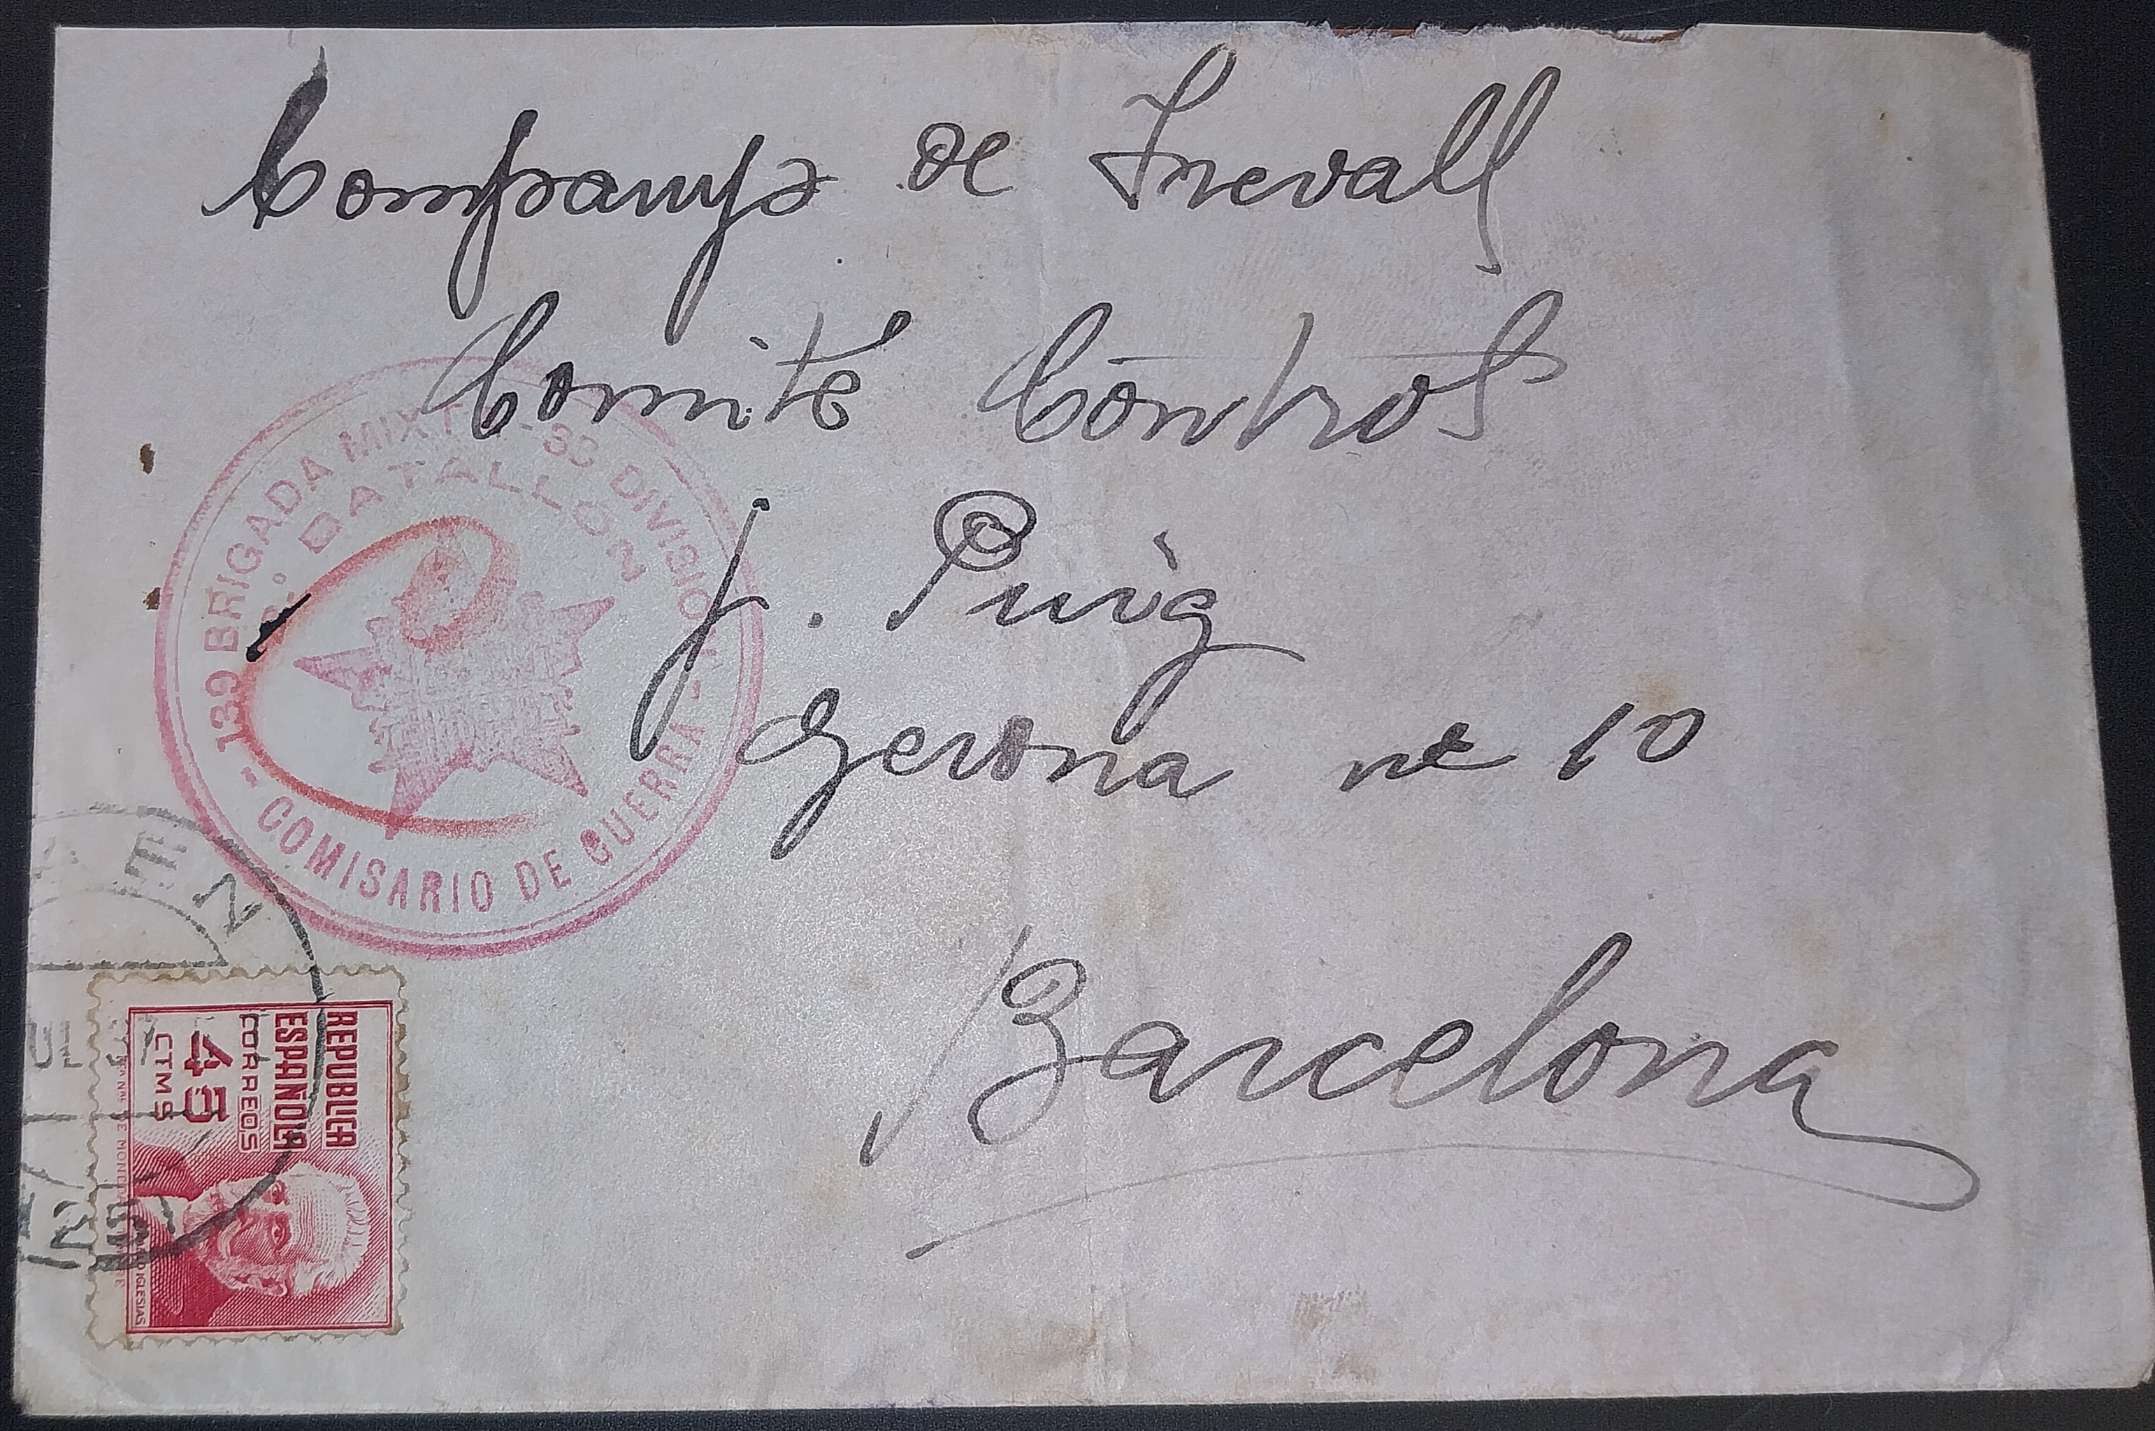 Companys de Trevall
Comité Control
J. Puig
Gerona nº 10
Barcelona
139 BRIGADA MIXTA - 33 DIVISION
BATALLÓN
- COMISARIO DE GUERRA -
REPUBLICA
ESPAÑOLA
CORREOS
45
CTMS
IGLESIAS